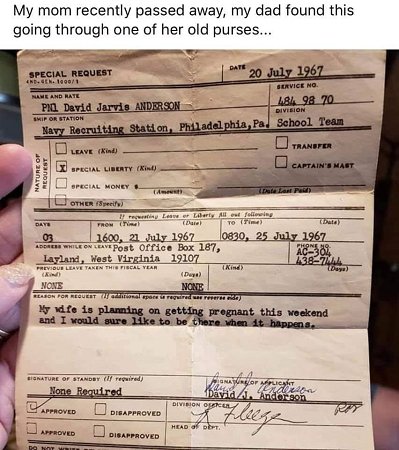 My mom recently passed away, my dad found this
going through one of her old purses...
SPECIAL REQUEST
DATE
20 July 1967
NAME AND RATE
SERVICE NO.
PN1 David Jarvis ANDERSON
484 98 70
SHIP OR STATION
DIVISION
Navy Recruiting Station, Philadelphia, Pa.
School Team
NATURE OF REQUEST
LEAVE (Kind)
TRANSFER
X SPECIAL LIBERTY (Kind)
CAPTAIN'S MAST
SPECIAL MONEY $
(Amount)
(Date Last Paid)
OTHER (Specify)
If requesting Leave or Liberty fill out following
DAYS
FROM (Time) (Date)
TO (Time) (Date)
03
1600, 21 July 1967
0830, 25 July 1967
ADDRESS WHILE ON LEAVE Post Office Box 187,
PHONE NO.
Layland, West Virginia 19107
AC-304
438-7444
PREVIOUS LEAVE TAKEN THIS FISCAL YEAR
(Days)
(Kind)
(Days)
NONE
NONE
REASON FOR REQUEST (If additional space is required use reverse side)
My wife is planning on getting pregnant this weekend
and I would sure like to be there when it happens.
SIGNATURE OF STANDBY (If required)
SIGNATURE OF APPLICANT
None Required
David J. Anderson
David J. Anderson
APPROVED
DISAPPROVED
DIVISION OFFICER
APPROVED
DISAPPROVED
HEAD OF DEPT.